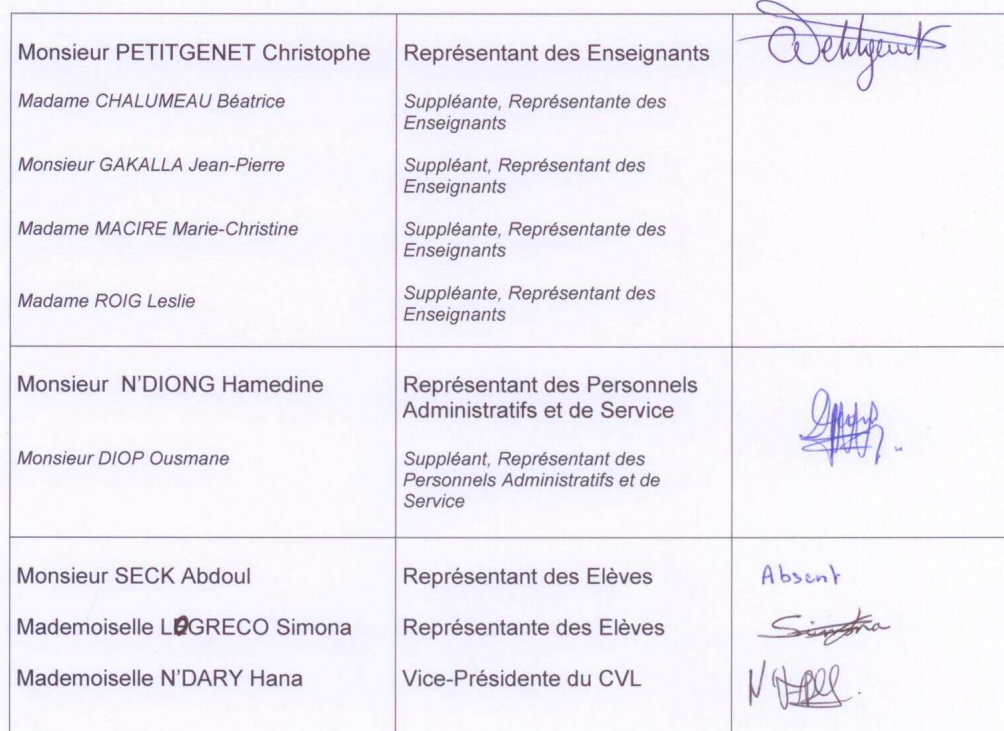 Monsieur PETITGENET Christophe
Représentant des Enseignants
Petitgenet
Madame CHALUMEAU Béatrice
Suppléante, Représentante des
Enseignants
Monsieur GAKALLA Jean-Pierre
Suppléant, Représentant des
Enseignants
Madame MACIRE Marie-Christine
Suppléante, Représentante des
Enseignants
Madame ROIG Leslie
Suppléante, Représentant des
Enseignants
Monsieur N'DIONG Hamedine
Représentant des Personnels
Administratifs et de Service
Monsieur DIOP Ousmane
Suppléant, Représentant des
Personnels Administratifs et de
Service
Monsieur SECK Abdoul
Représentant des Elèves
Absent
Mademoiselle LOGRECO Simona
Représentante des Elèves
Simona
Mademoiselle N'DARY Hana
Vice-Présidente du CVL